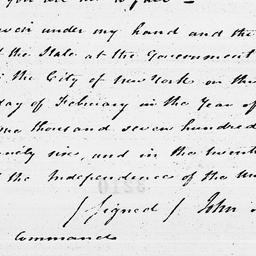 under my hand and the
the State at the Government
the City of new York on the
day of February in the Year of
one thousand seven hundred
ninety six, and in the twenti
the Independence of the Un
(signed) John
Command